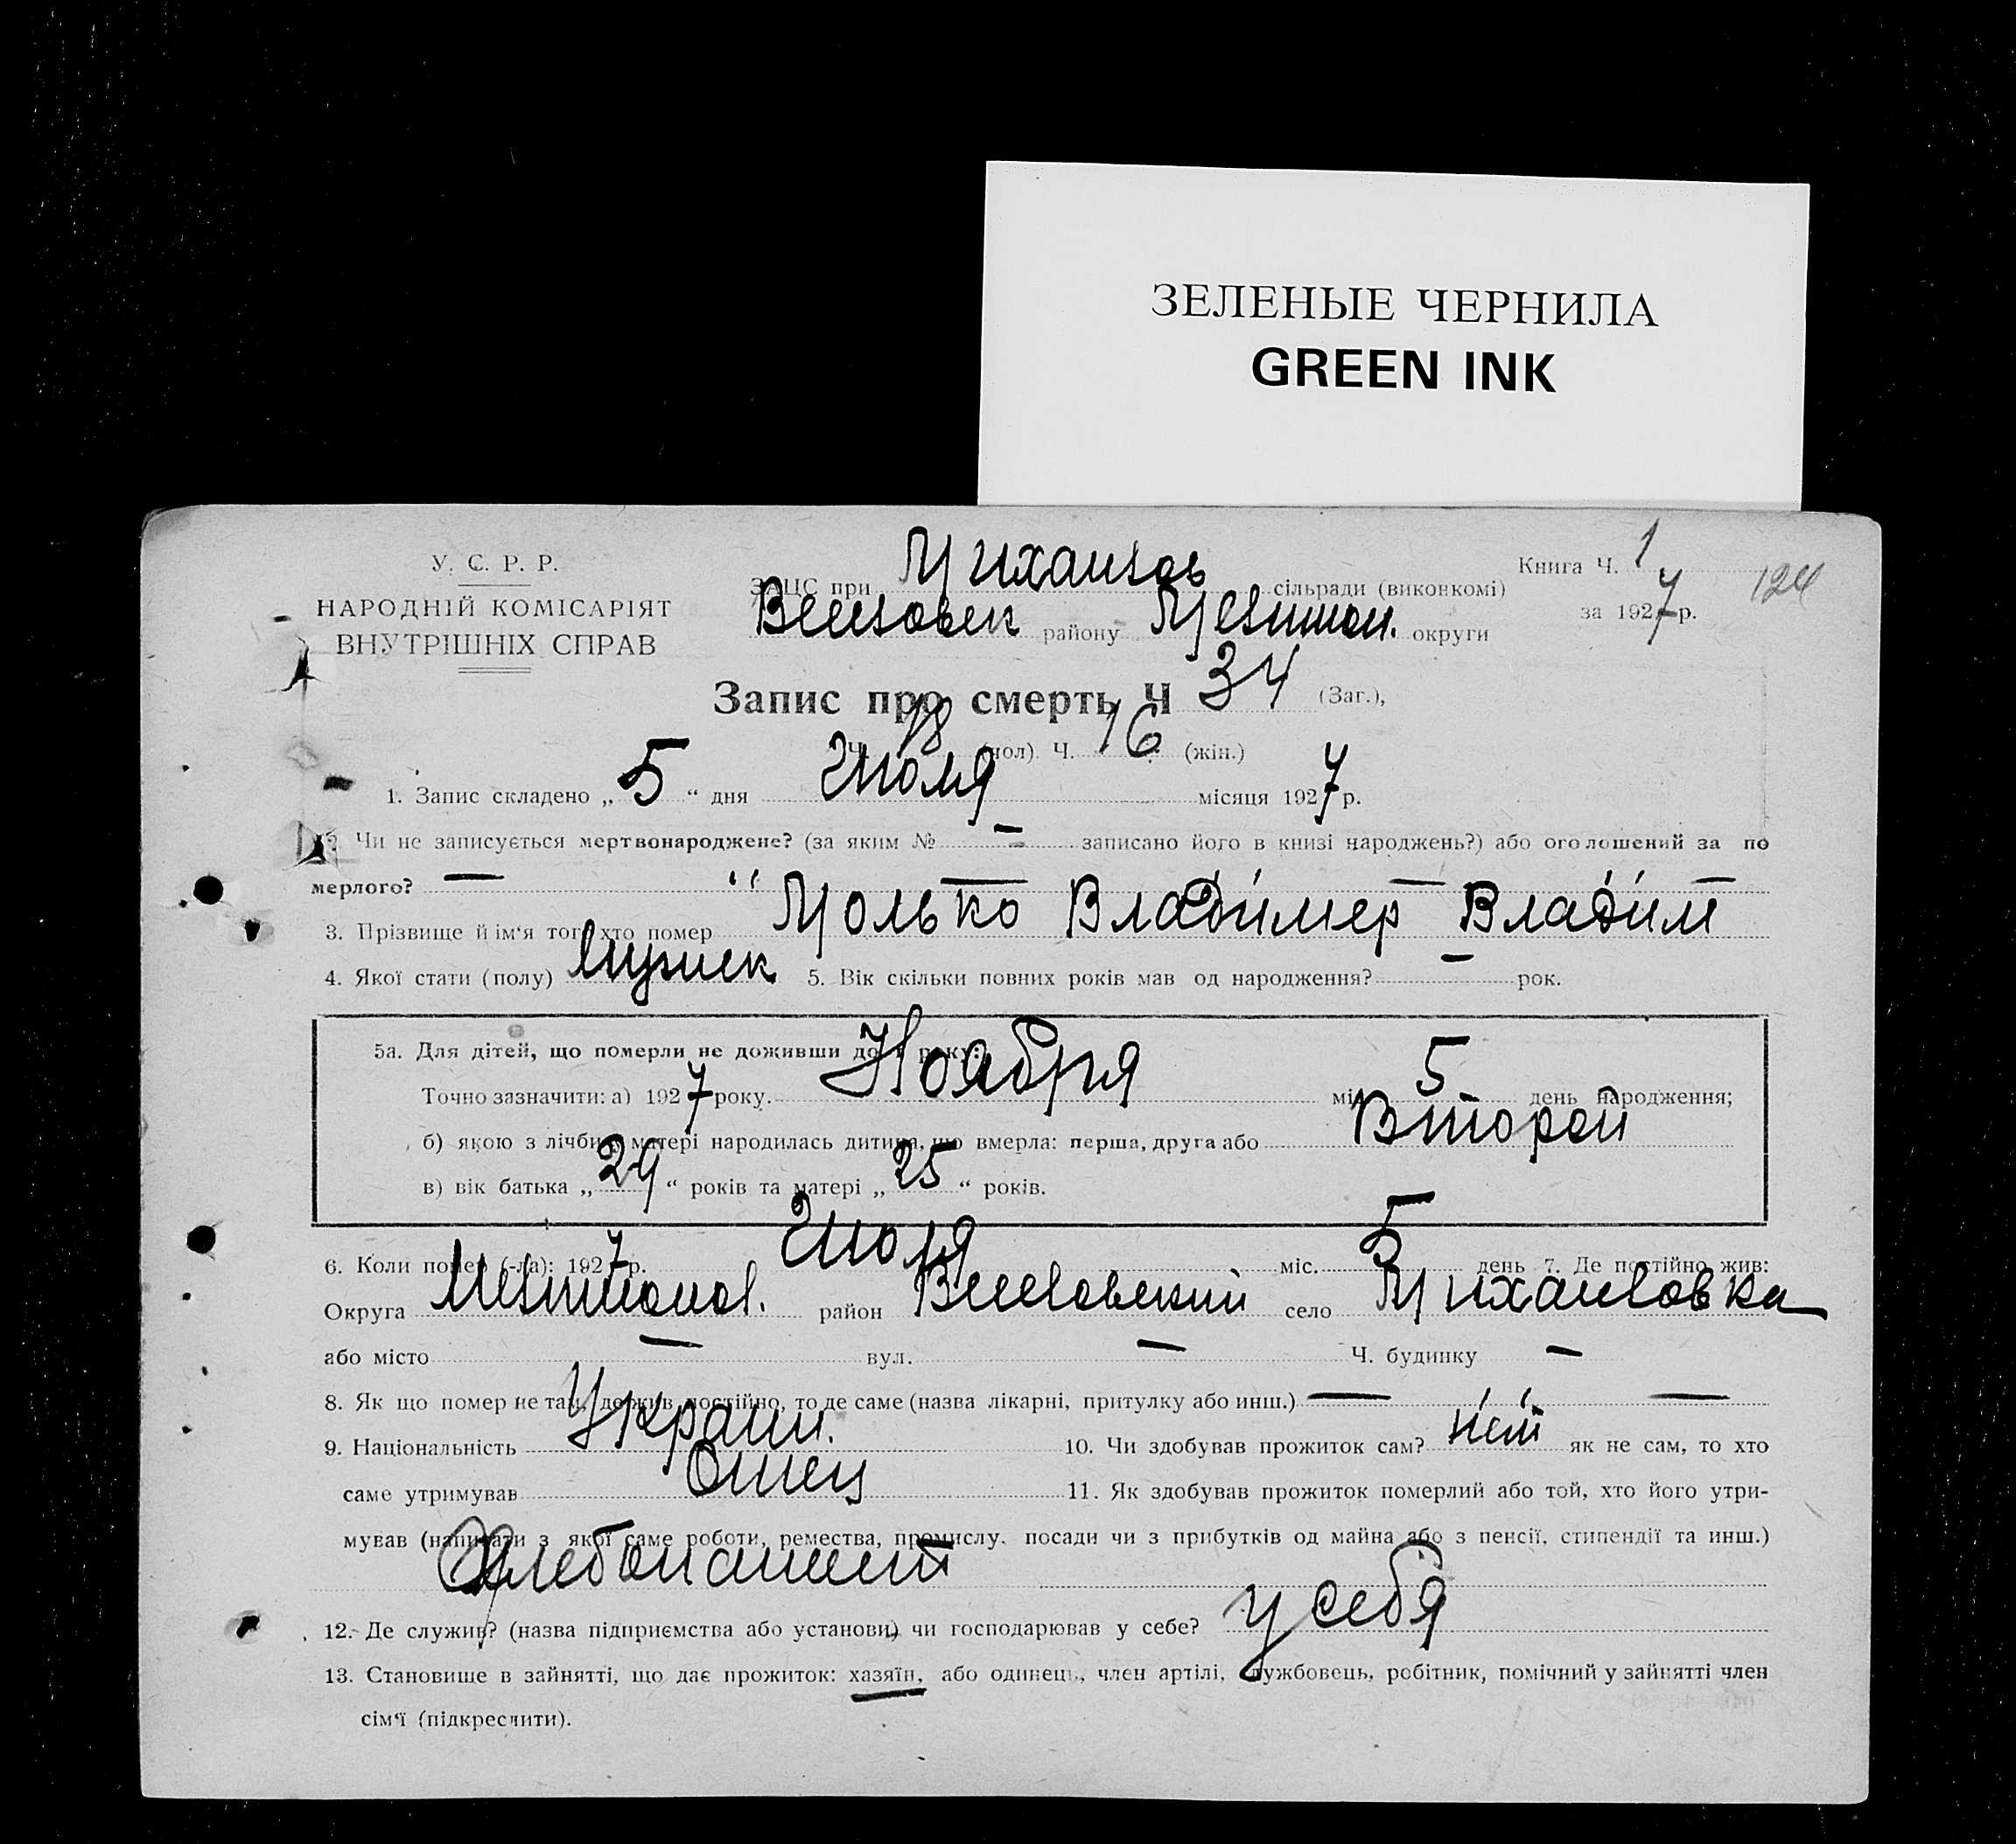 ЗЕЛЕНЫЕ ЧЕРНИЛА
GREEN INK
У. С. Р. Р.
НАРОДНІЙ КОМІСАРІЯТ
ВНУТРІШНІХ СПРАВ
ЗАЦС при Михайлов сільради (виконкомі)
району округи
Книга Ч. 1
за 1927 р.
124
Запис про смерть Ч 34 (Заг.),
Ч. 18 (чол). Ч. 16 (жін.)
1. Запис складено „ 5 “ дня Июля місяця 1927 р.
Чи не записується мертвонароджене? (за яким № — записано його в книзі народжень?) або оголошений за по
мерлого? —
3. Прізвище й ім'я того хто помер Молько Владимер Владим
4. Якої стати (полу) мужск 5. Вік скільки повних років мав од народження? — рок.
5а. Для дітей, що померли не доживши до 1 року:
Точно зазначити: а) 1927 року. Ноября міс. 5 день народження;
б) якою з лічби у матері народилась дитина, що вмерла: перша, друга або Второй
в) вік батька „ 29 “ років та матері „ 25 “ років.
6. Коли помер (-ла): 1927 р. Июля міс. 5 день 7. Де постійно жив:
Округа район село Михайловка
або місто — вул. — Ч. будинку —
8. Як що помер не там, де жив постійно, то де саме (назва лікарні, притулку або инш.) — —
9. Національність Украин. 10. Чи здобував прожиток сам? нет як не сам, то хто
саме утримував Отец 11. Як здобував прожиток померлий або той, хто його утри-
мував (написати з якої саме роботи, ремества, промислу. посади чи з прибутків од майна або з пенсії, стипендії та инш.)
Хлебопашест
12. Де служив? (назва підприємства або установи) чи господарював у себе? у себя
13. Становище в зайнятті, що дає прожиток: хазяїн, або одинець, член артілі, службовець, робітник, помічний у зайнятті член
сім'ї (підкреслити).